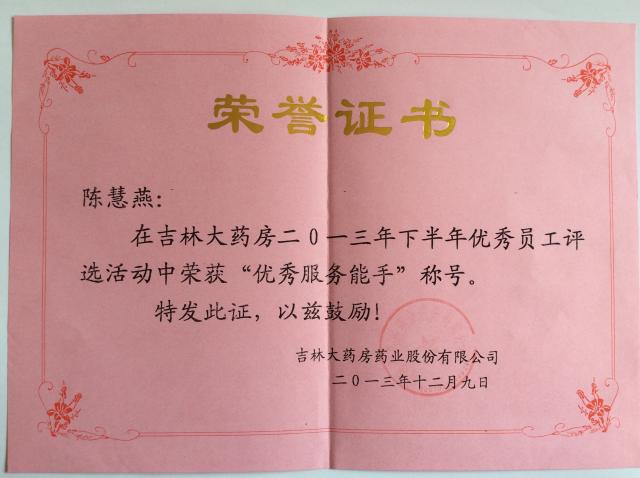 荣誉证书
陈慧燕：
在吉林大药房二0一三年下半年优秀员工评
选活动中荣获“优秀服务能手”称号。
特发此证，以兹鼓励！
吉林大药房药业股份有限公司
二0一三年十二月九日